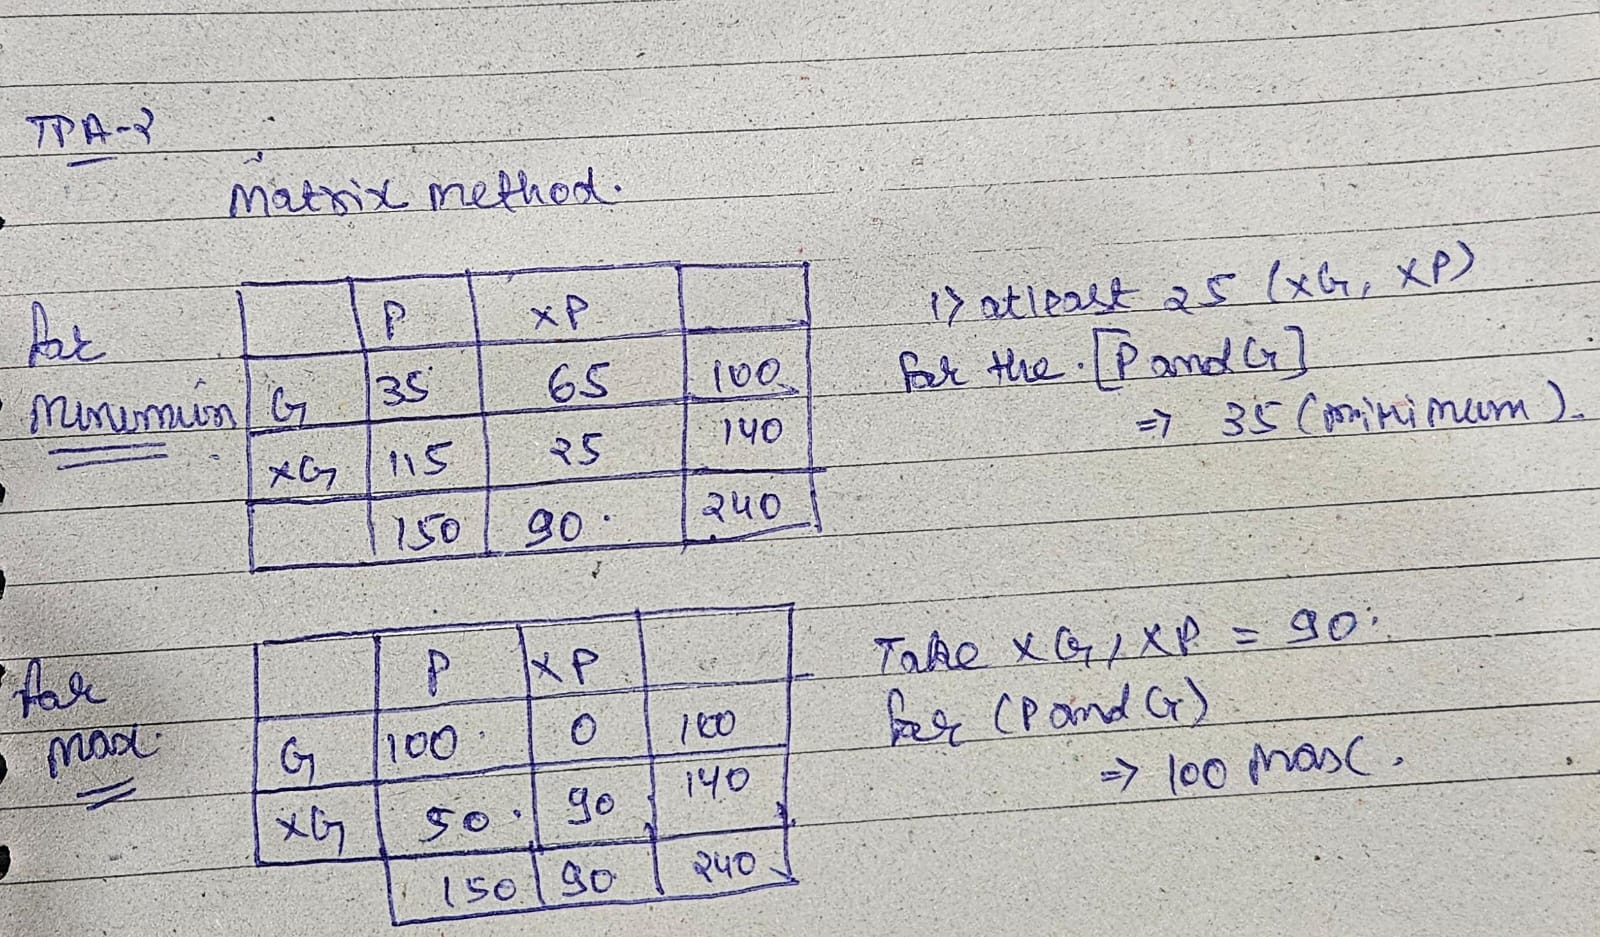 TPA-2
Matrix method.
for minimum
P xP
G 35 65 100
xG 115 25 140
150 90 240
1) atleast 25 (xG, xP)
for the [P and G]
⇒ 35 (minimum).
for max
P xP
G 100 0 100
xG 50 90 140
150 90 240
Take xG, xP = 90
for (P and G)
⇒ 100 max.